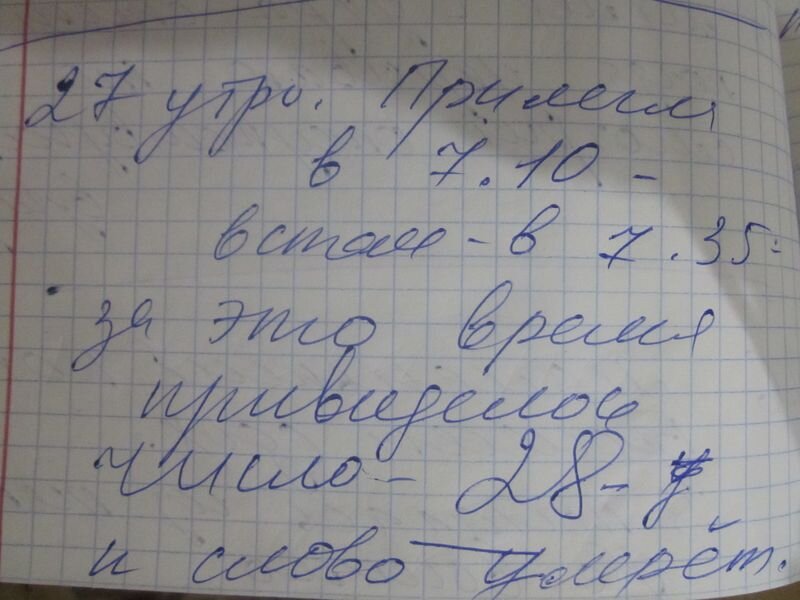 27 утро. Прилегла
в 7.10 -
встала - в 7.35-
за это время
привиделось
число - 28 -
и слово умрёт.